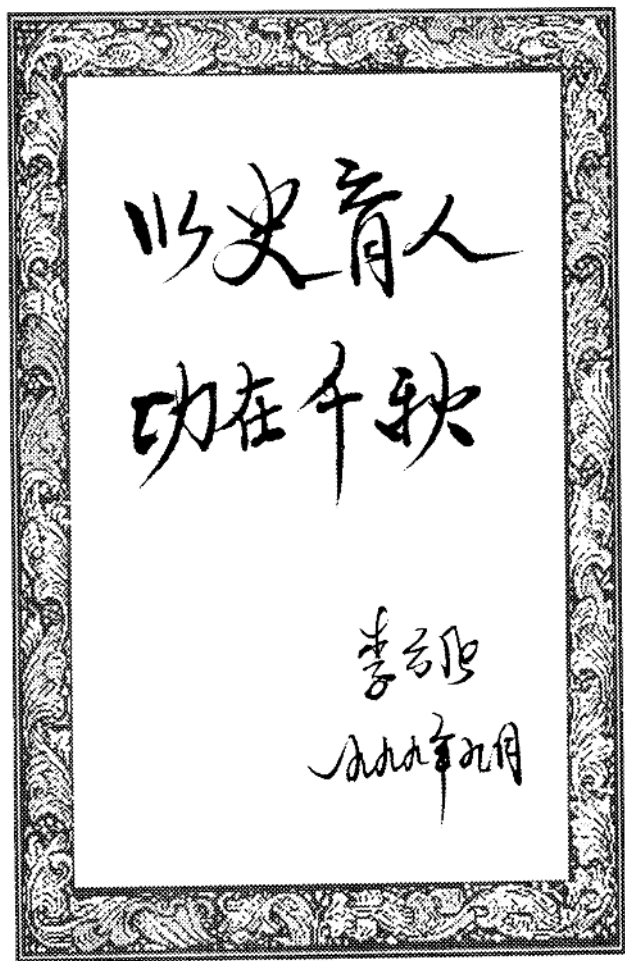 以史育人
功在千秋
李云
一九九九年九月